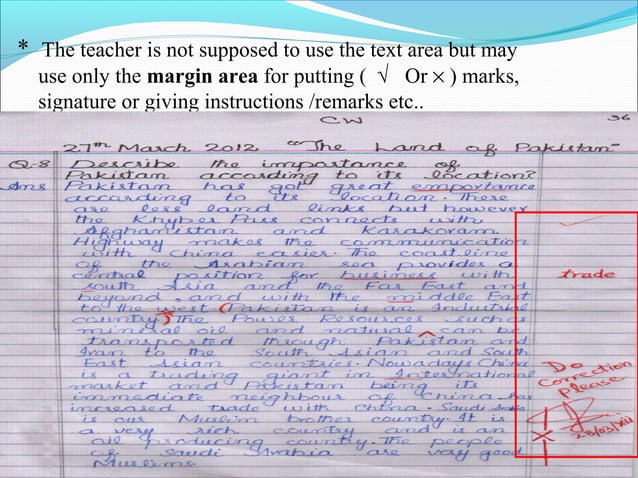 * The teacher is not supposed to use the text area but may
use only the margin area for putting ( √ Or × ) marks,
signature or giving instructions /remarks etc..
CW 36
27th March 2012 "The Land of Pakistan"
Q-8 Describe the importance of
Pakistan according to its location?
Ans Pakistan has got great emportance
according to its location. There
are less land links but however
the Khyber Pass connects with
Afghanistan and Karakoram
Highway makes the communication
with China easier. The coastline
of the Arabian sea provides a
central position for business with
trade
south Asia and the Far East and
beyond, and with the middle East
to the west (Pakistan is an Industrial
country) The Power Resources suchas
mineral oil and natural can be
transported through Pakistan and
Iran to the South Asian and South
East Asian countries. Nowadays China
is a trading giant in International
market and Pakistan being its
immediate neighbour of China has
increased trade with China. Saudi Arabia
is our Muslim brother country. It is
a very rich country and is an
oil producing country. The people
of Saudi Arabia are very good
Muslims.
Do
Correction
Please
28/03/XII